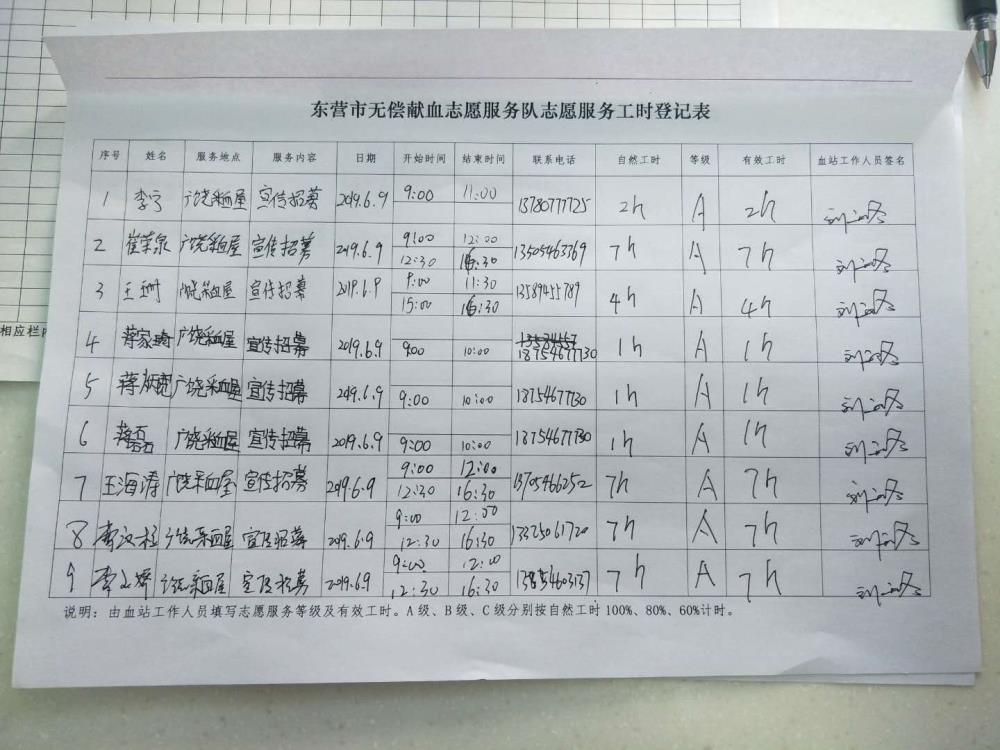 东营市无偿献血志愿服务队志愿服务工时登记表
序号 姓名 服务地点 服务内容 日期 开始时间 结束时间 联系电话 自然工时 等级 有效工时 血站工作人员签名
1 李宁 广饶采血屋 宣传招募 2019.6.9 9:00 11:00 13780777725 2h A 2h
2 崔荣泉 广饶采血屋 宣传招募 2019.6.9 9:00 12:00 13505463769 7h A 7h
12:30 16:30
3 王珊 广饶采血屋 宣传招募 2019.6.9 9:00 11:30 13589455789 4h A 4h
15:00 16:30
4 蒋家琦 广饶采血屋 宣传招募 2019.6.9 9:00 10:00 18754677730 1h A 1h
5 蒋炳 广饶采血屋 宣传招募 2019.6.9 9:00 10:00 18754677730 1h A 1h
6 蒋 广饶采血屋 宣传招募 2019.6.9 9:00 10:00 18754677730 1h A 1h
7 王海涛 广饶采血屋 宣传招募 2019.6.9 9:00 12:00 13705466252 7h A 7h
12:30 16:30
8 李汉 广饶采血屋 宣传招募 2019.6.9 9:00 12:00 13325061720 7h A 7h
12:30 16:30
9 李 广饶采血屋 宣传招募 2019.6.9 9:00 12:00 13854603137 7h A 7h
12:30 16:30
说明：由血站工作人员填写志愿服务等级及有效工时。A级、B级、C级分别按自然工时100%、80%、60%计时。
相应栏内